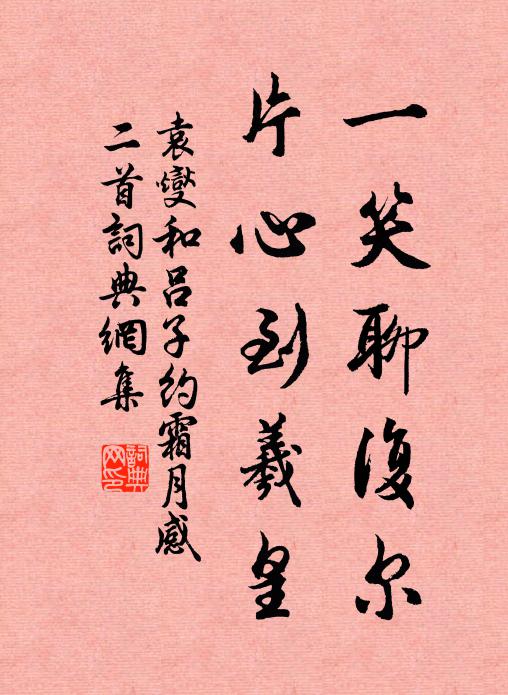 一笑聊復尔
片心到羲皇
袁燮和吕子约霜月感
二首詞典網集
詞典网印